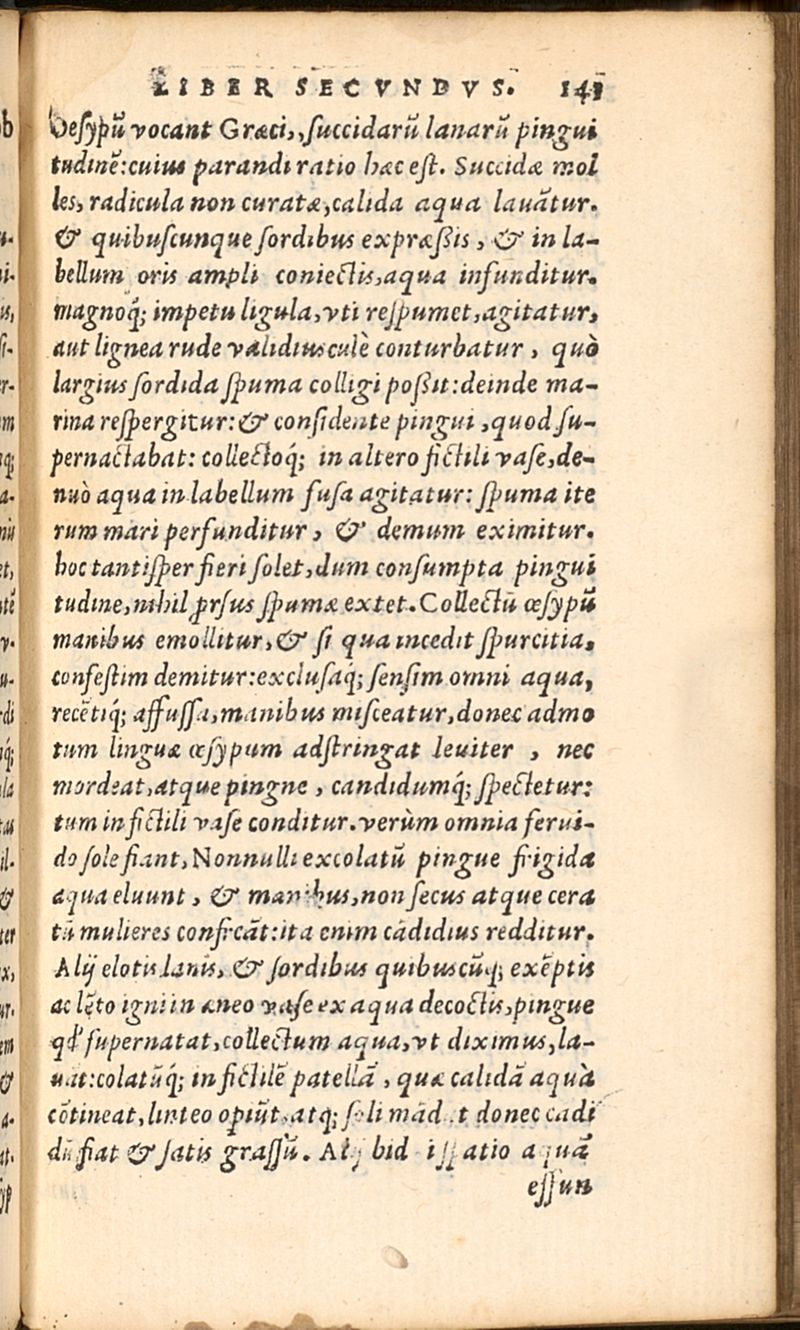 LIBER SECVNDVS. 143
Oesypũ vocant Græci, succidarũ lanarũ pingui
tudinẽ: cuius parandi ratio hæc est. Succidæ mol
les, radicula non curatæ, calida aqua lauãtur.
& quibuscunque sordibus expræssis, & in la-
bellum oris ampli coniectis, aqua infunditur.
magnoq́; impetu ligula, vti respumet, agitatur,
aut lignea rude validiusculè conturbatur, quò
largius sordida spuma colligi possit: deinde ma-
rina respergitur: & considente pingui, quod su-
pernactabat: collectoq́; in altero fictili vase, de-
nuò aqua in labellum fusa agitatur: spuma ite
rum mari perfunditur, & demum eximitur.
hoc tantisper fieri solet, dum consumpta pingui
tudine, nihil prsus spumæ extet. Collectũ œsypũ
manibus emollitur, & si qua incedit spurcitia,
confestim demitur: exclusaq́; sensim omni aqua,
recẽtiq́; affussa, manibus misceatur, donec admo
tum linguæ œsypum adstringat leuiter, nec
mordeat, atque pingne, candidumq́; spectetur:
tum in fictili vase conditur. verùm omnia ferui-
do sole fiant, Nonnulli excolatũ pingue frigida
aqua eluunt, & manibus, non secus atque cera
tũ mulieres confricãt: ita enim cãdidius redditur.
Alij elotis lanis, & sordibus quibuscũq; exẽptis
ac lẽto igni in æneo vase ex aqua decoctis, pingue
qđ supernatat, collectum aqua, vt diximus, la-
uat: colatũq́; in fictilẽ patellã, quæ calidã aquà
cõtineat, linteo opiũt, atq; soli mãd t donec cãdi
dũ fiat & satis grassũ. Alij aquã
essun